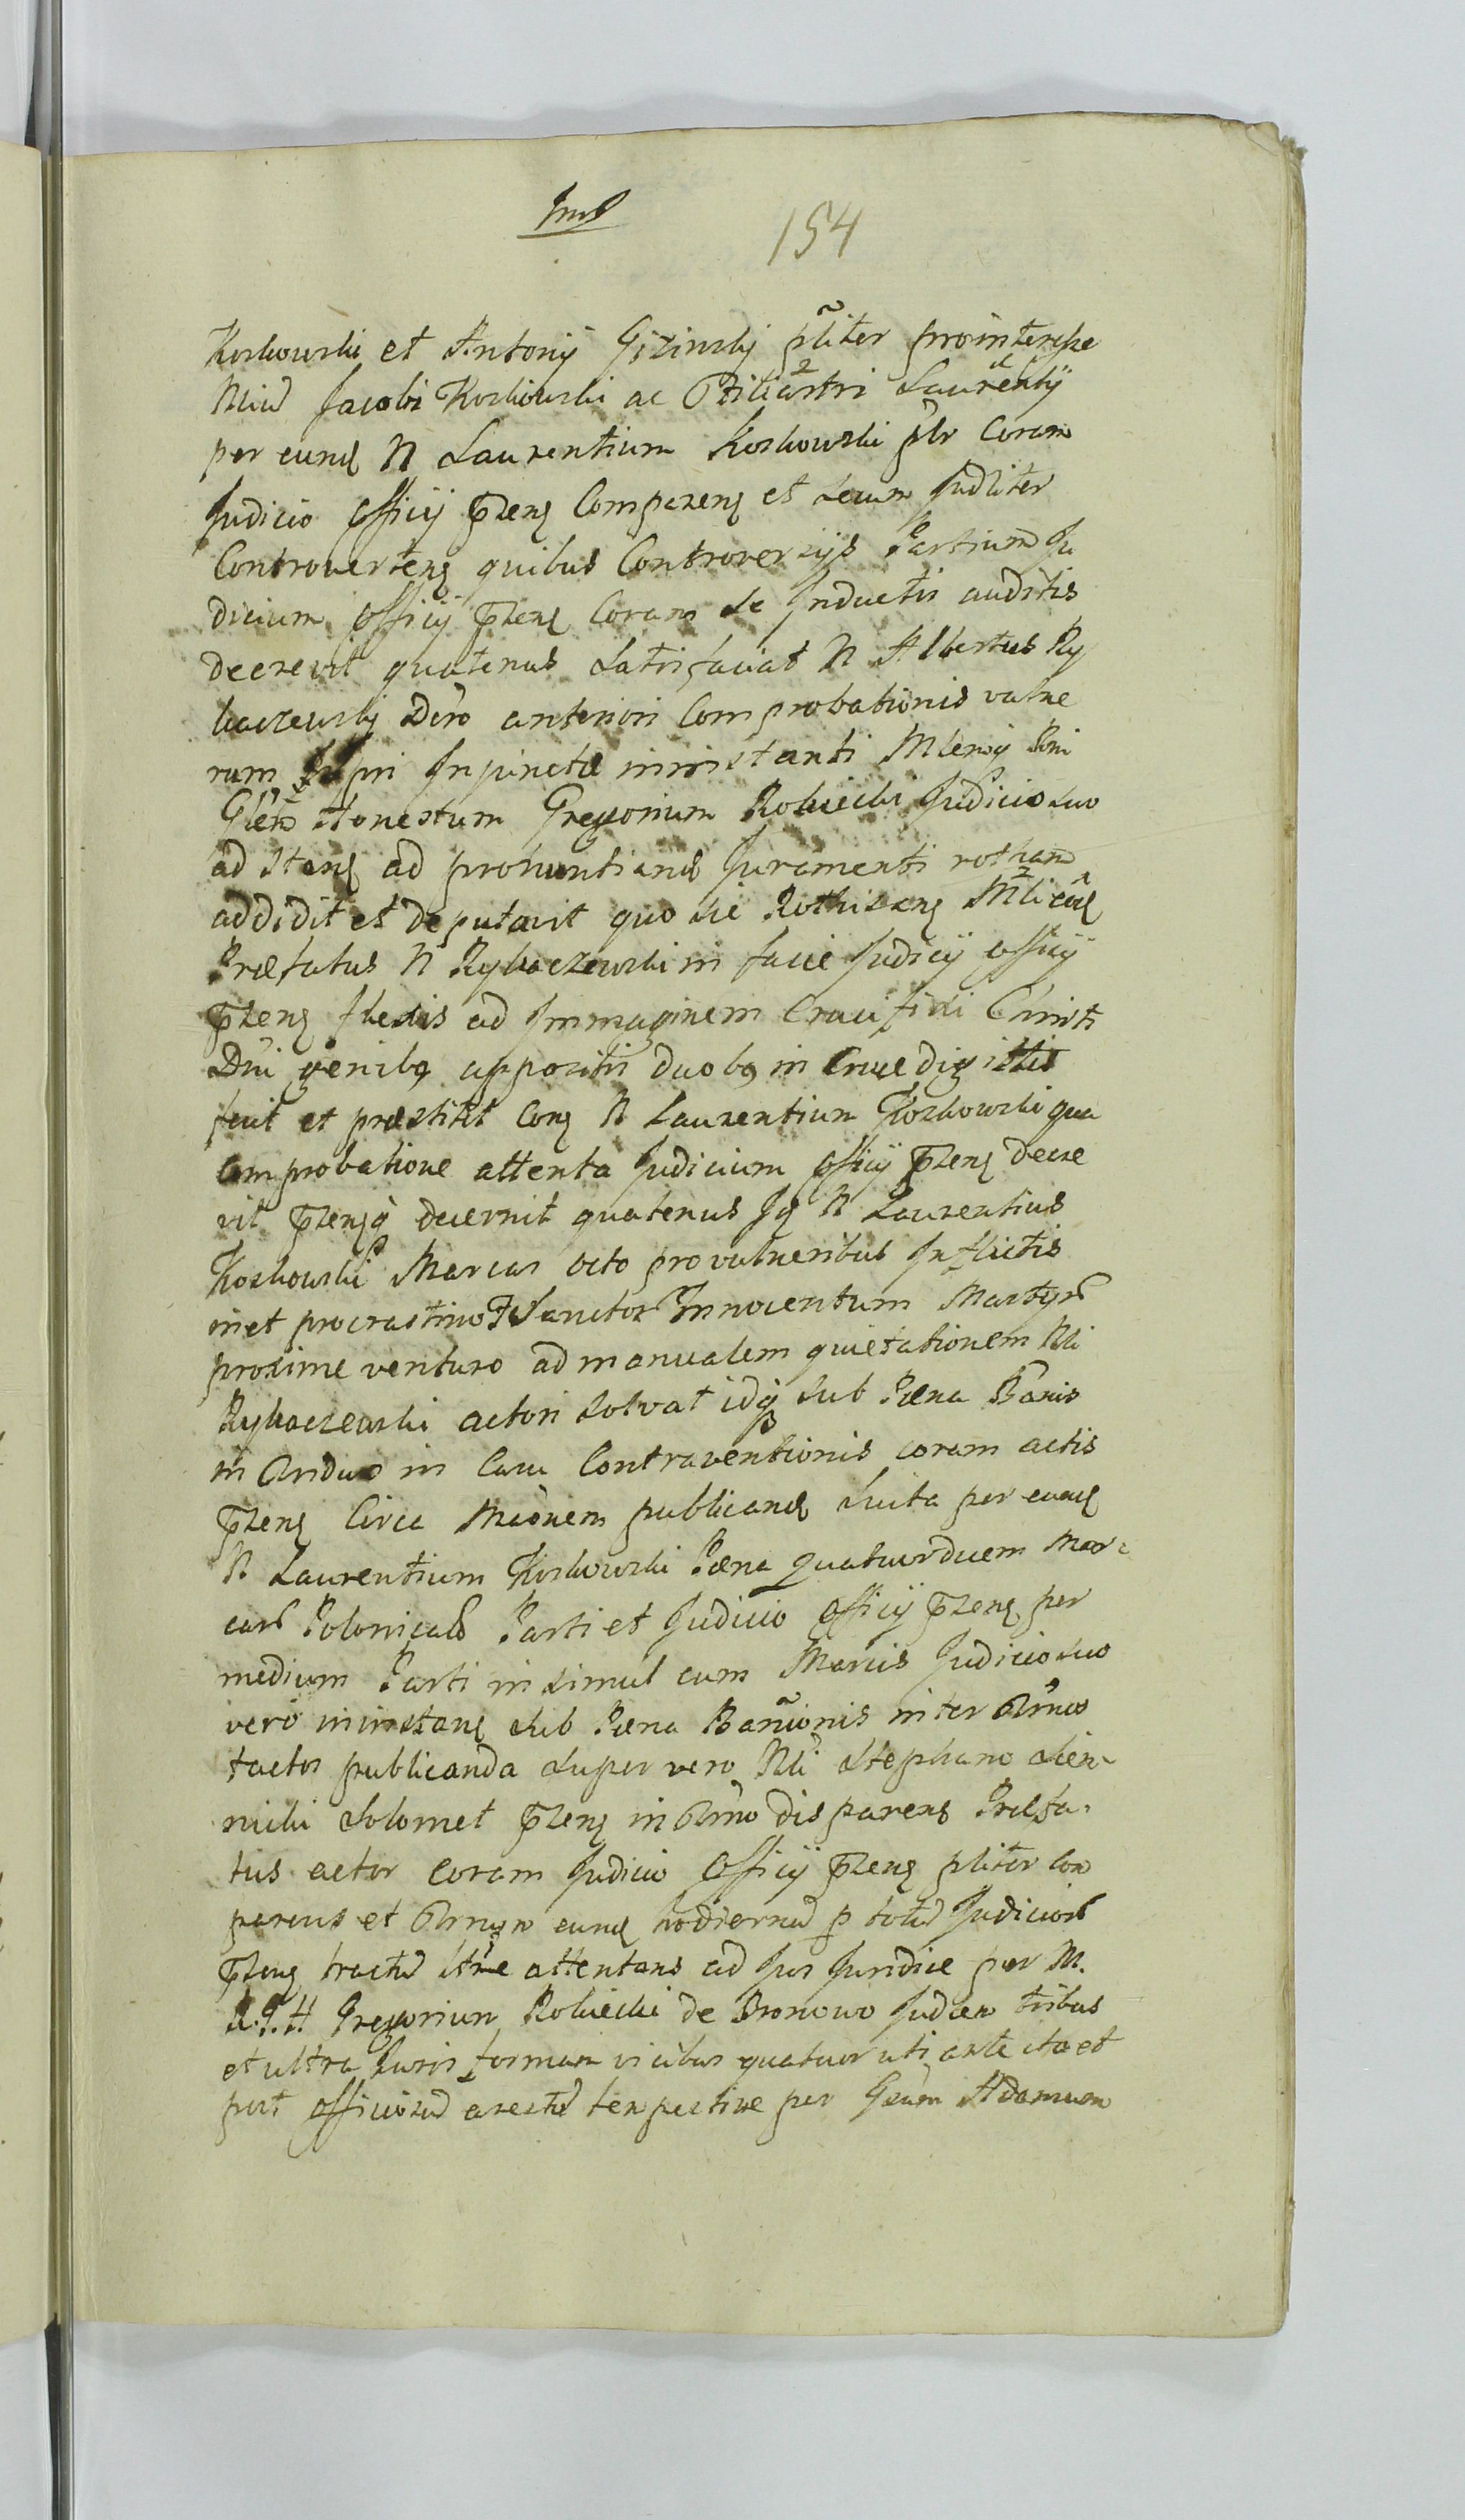 154
Koskowski et Antonij Gizinskij pliter pro interesse
Jacobi Koskowski ac Laurentij
per eund N Laurentium Koskowski plr Coram
Judicio Officij pzens Comparens et secum Judliter
Controvertens quibus Controversijs Partium Ju
dicium Officij pzens Coram se Inductis auditis
decrevit quatenus satisfaciat N Albertus Ry
baczewskij Dcro anteriori Comprobationis vulne
rum Injunctae ininstanti
Honestum Gregorium Robiecki Judicio suo
ad stans ad pronuntiand Juramenti rotham
addidit et deputavit quo sic Rothisans
Praefatus N Rybaczewski in facie Judicij Officij
pzens flexis ad Immaginem Crucifixi Christi
Dni genibq appositis duobq in Cruce digittis
fecit et praestitit Cons N Laurentium Koskowski qua
Comprobatione attenta Judicium Officij pzens decre
vit pzensq decernit quatenus Jd N Laurentius
Koskowski Marcas octo pro vulneribus Inflictis
in et pro crastino F Sanctor Innocentum Martyr
proxime venturo ad manualem quietationem Nli
Rybaczewski actori solvat idq sub Paena Banis
in Arduo in Casu Contraventionis coram actis
pzens Circa Maonem publicand luita per eund
N Laurentium Koskowski Paena quatuordecem Mar
car Polonicals Parti et Judicio Officij pzens per
medium Parti in simul cum Marcis Judicio suo
vero ininstans sub Paena Banionis inter
factos publicanda super vero Nli Stephano
Solomet pzens in disparens Praefa
tus actor coram Judicio Officij pzens pliter com
parens et eund hodiernu p totu Judicior
pzens tractu attentans ad Jus Juridice per M.
R. J. H Gregorium Robiecki de Bronowo Judicem tribus
et ultra Juris formam vicibus quatuor uti ante ita et
post officiosu arestu tempestive per Adamum